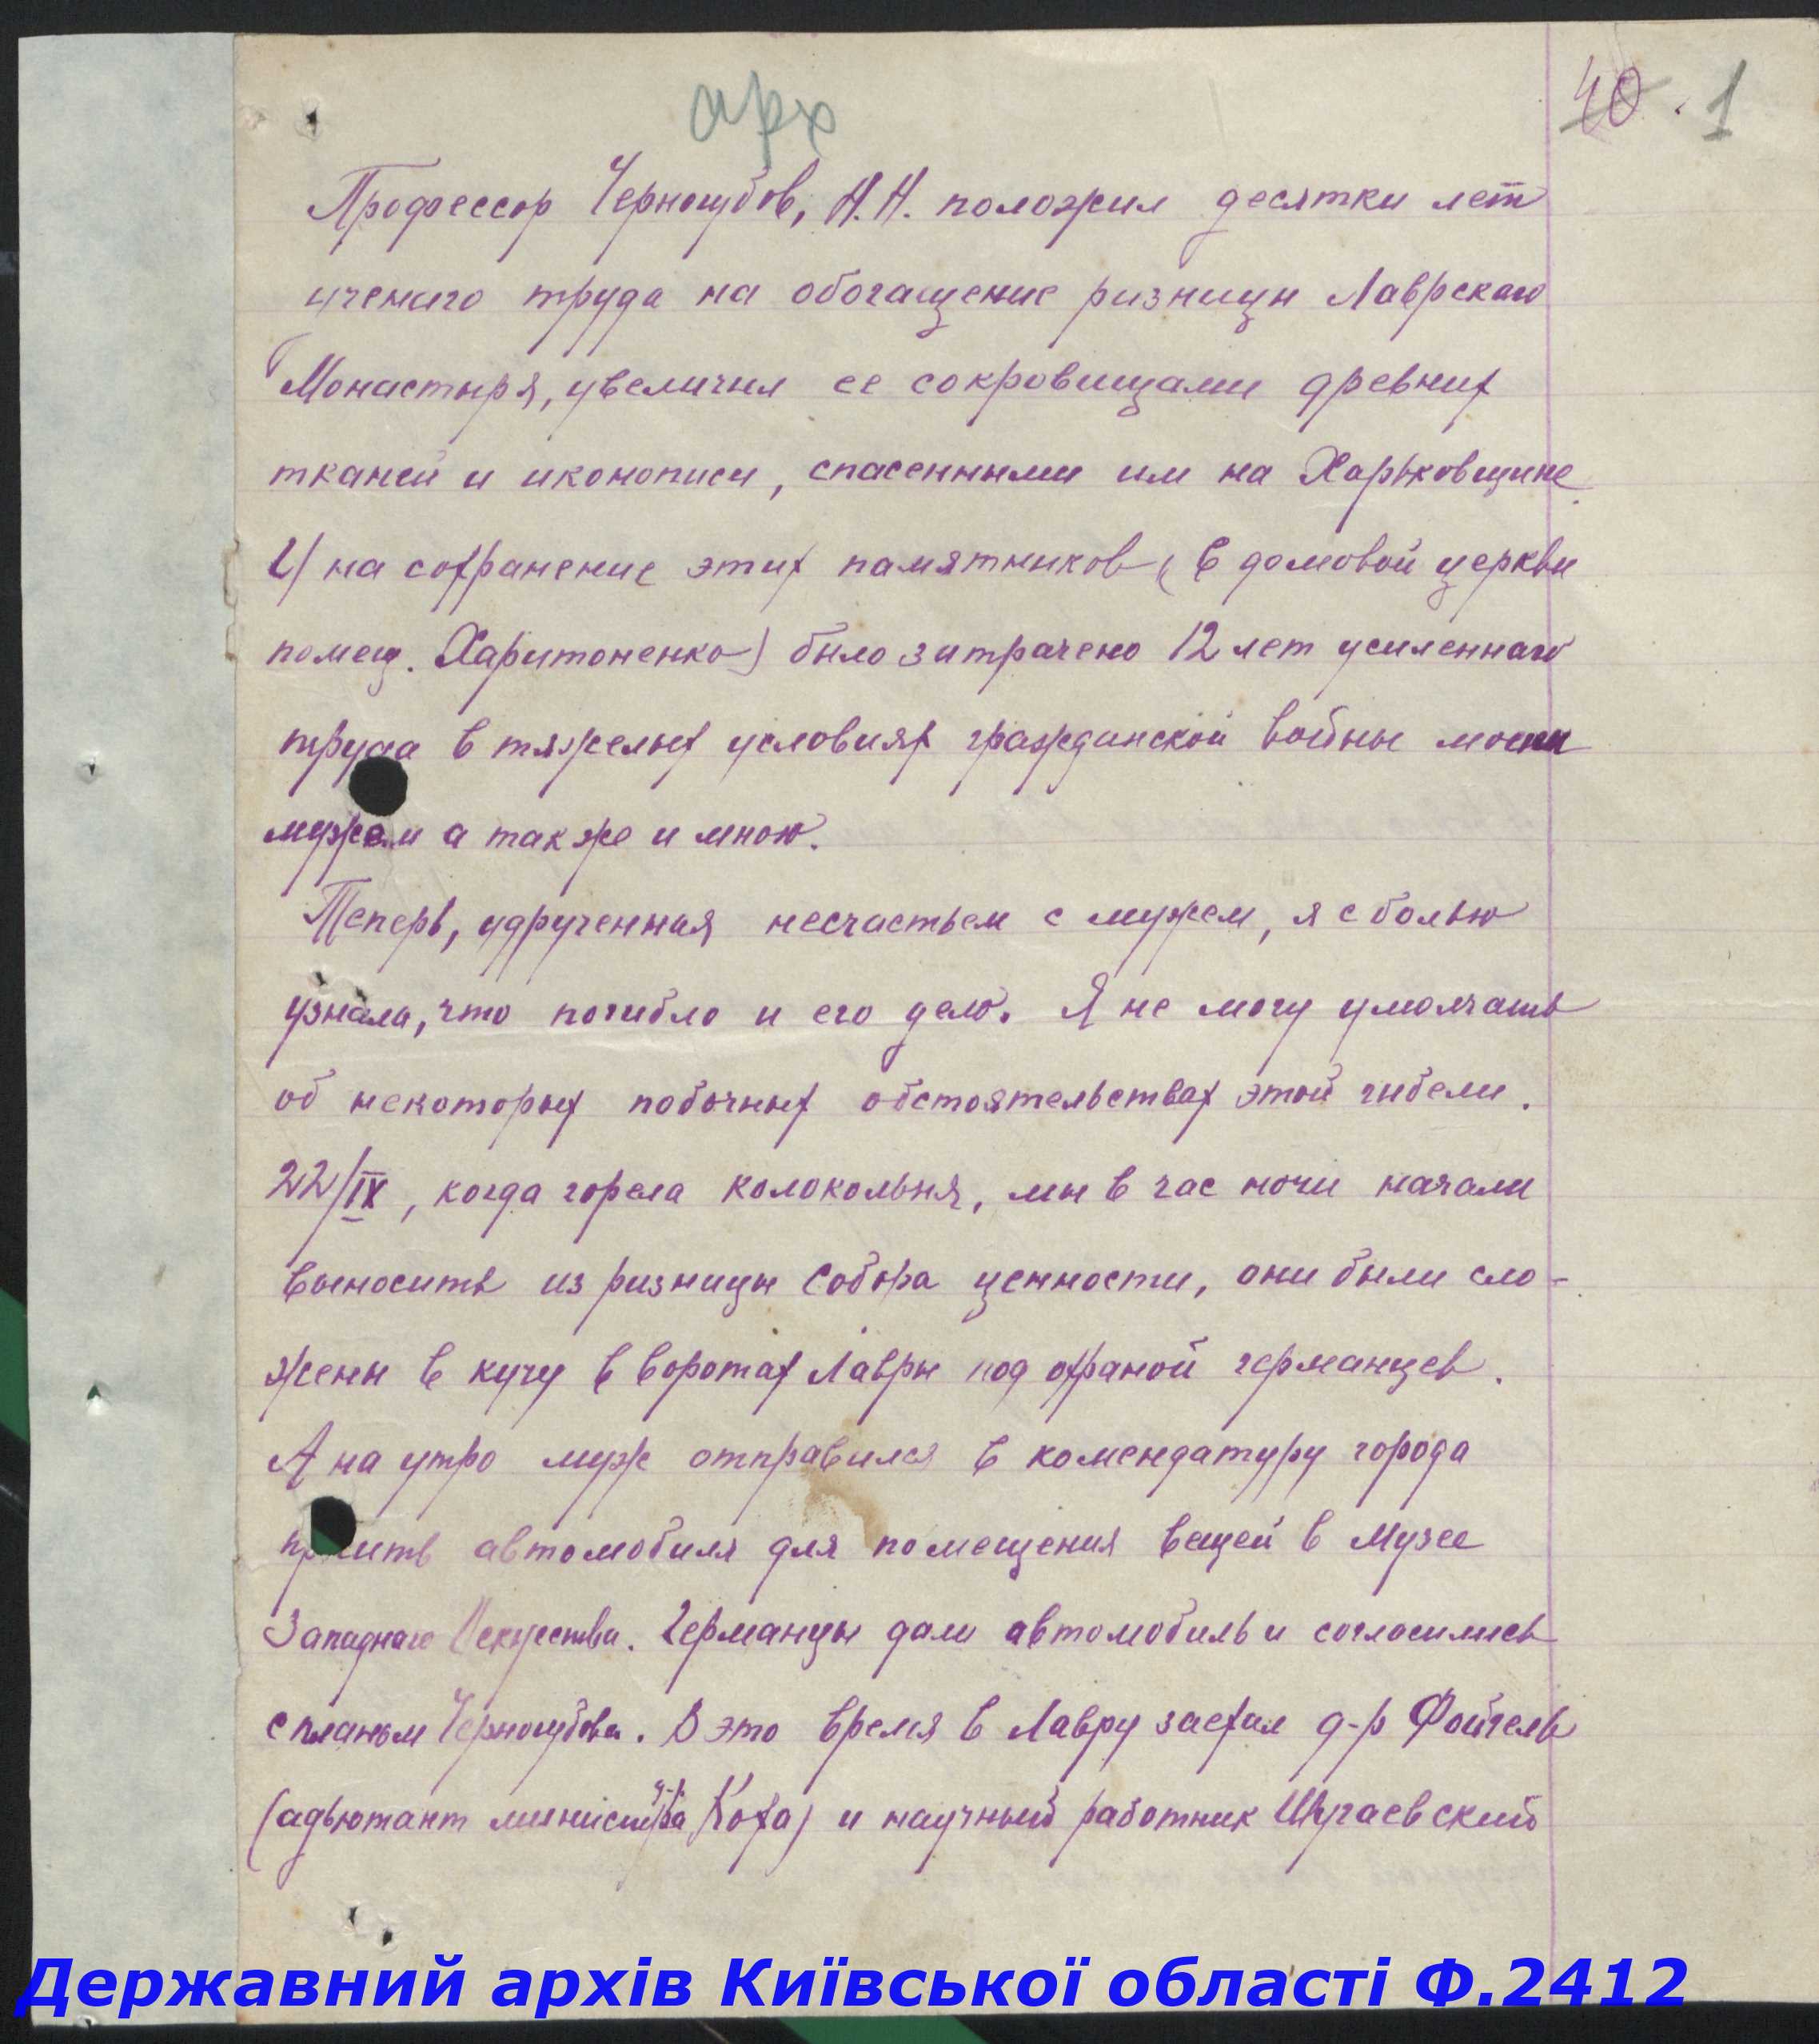 арх
40. 1
Профессор Черногубов, Н.Н. положил десятки лет
ученаго труда на обогащение ризницы Лаврскаго
Монастыря, увеличил ее сокровищами древних
тканей и иконописи, спасенными им на Харьковщине.
И на сохранение этих памятников (в домовой церкви
помещ. Харитоненко) было затрачено 12 лет усиленнаго
труда в тяжелых условиях гражданской войны моим
мужем а также и мною.
Теперь, удрученная несчастьем с мужем, я с болью
узнала, что погибло и его дело. Я не могу умолчать
об некоторых побочных обстоятельствах этой гибели.
22/IX, когда горела колокольня, мы в час ночи начали
выносить из ризницы Собора ценности, они были сло-
жены в кучу в воротах Лавры под охраной германцев.
А на утро муж отправился в комендатуру города
просить автомобиля для помещения вещей в Музее
Западнаго Искусства. Германцы дали автомобиль и согласились
с планом Черногубова. В это время в Лавру заехал д-р Фойгель
(адьютант министра д-ра Коха) и научный работник Шугаевский
Державний архів Київської області Ф.2412